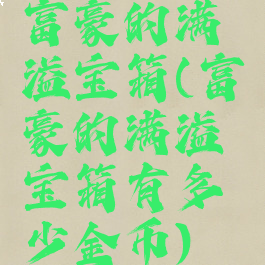 富豪的满
溢宝箱(富
豪的满溢
宝箱有多
少金币)